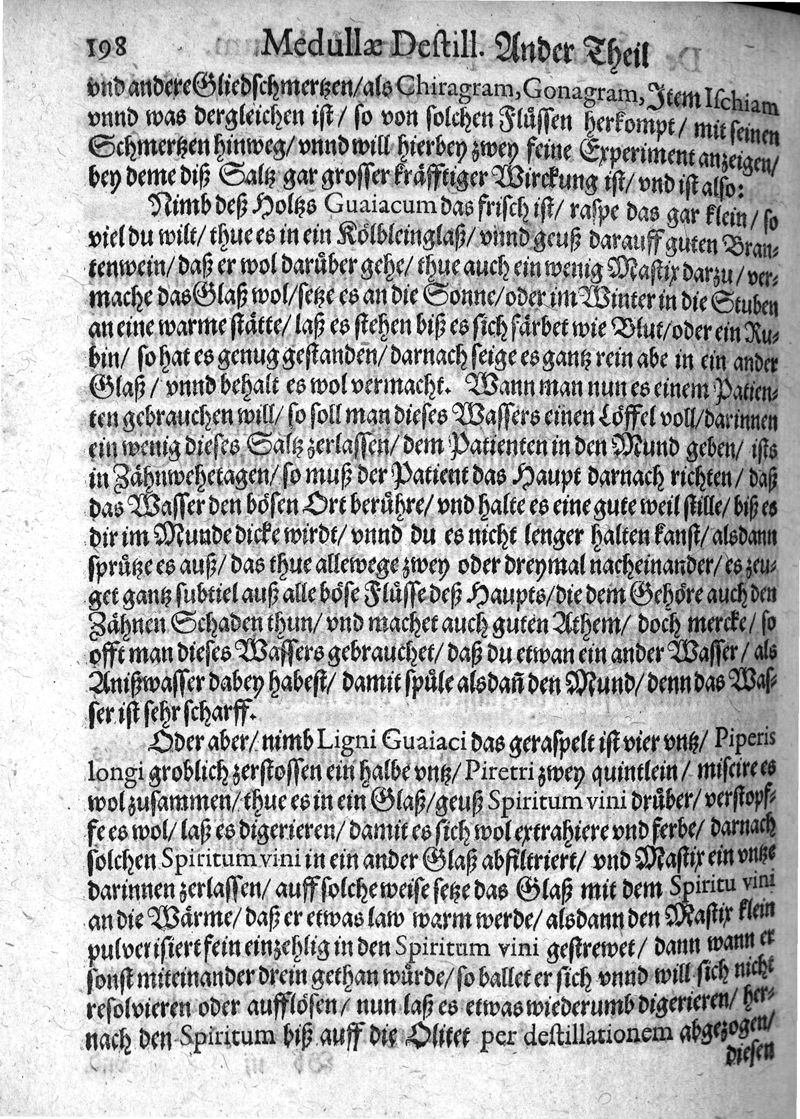 198 Medullæ Destill. Ander Theil
vnd andere Gliedschmertzen/ als Chiragram, Gonagram, Item Ischiam
vnnd was dergleichen ist/ so von solchen Flüssen herkompt/ mit seinen
Schmertzen hinweg/ vnnd will hierbey zwey feine Experiment anzeigen/
bey deme diß Saltz gar grosser kräfftiger Wirckung ist/ vnd ist also:
Nimb deß Holtzs Guaiacum das frisch ist/ raspe das gar klein/ so
viel du wilt/ thue es in ein Kölbleinglaß/ vnnd geuß darauff guten Bran-
tenwein/ daß er wol darüber gehe/ thue auch ein wenig Mastix darzu/ ver-
mache das Glaß wol/ setze es an die Sonne/ oder im Winter in die Stuben
an eine warme stätte/ laß es stehen biß es sich färbet wie Blut/ oder ein Ru-
bin/ so hat es genug gestanden/ darnach seige es gantz rein abe in ein ander
Glaß/ vnnd behalt es wol vermacht. Wann man nun es einem Patien-
ten gebrauchen will/ so soll man dieses Wassers einen Löffel voll/ darinnen
ein wenig dieses Saltz zerlassen/ dem Patienten in den Mund geben/ ists
in Zähnwehetagen/ so muß der Patient das Haupt darnach richten/ daß
das Wasser den bösen Ort berühre/ vnd halte es eine gute weil stille/ biß es
dir im Munde dicke wirdt/ vnnd du es nicht lenger halten kanst/ alsdann
sprütze es auß/ das thue allewege zwey oder dreymal nacheinander/ es zeu-
get gantz subtiel auß alle böse Flüsse deß Haupts/ die dem Gehöre auch den
Zähnen Schaden thun/ vnd machet auch guten Athem/ doch mercke/ so
offt man dieses Wassers gebrauchet/ daß du etwan ein ander Wasser/ als
Anißwasser dabey habest/ damit spüle alsdañ den Mund/ denn das Was-
ser ist sehr scharff.
Oder aber/ nimb Ligni Guaiaci das geraspelt ist vier vntz/ Piperis
longi groblich zerstossen ein halbe vntz/ Piretri zwey quintlein/ miscire es
wol zusammen/ thue es in ein Glaß/ geuß Spiritum vini drüber/ verstopf-
fe es wol/ laß es digerieren/ damit es sich wol extrahiere vnd ferbe/ darnach
solchen Spiritum vini in ein ander Glaß abfiltriert/ vnd Mastix ein vntze
darinnen zerlassen/ auff solche weise setze das Glaß mit dem Spiritu vini
an die Wärme/ daß er etwas law warm werde/ alsdann den Mastix klein
pulverisiert fein einzehlig in den Spiritum vini gestrewet/ dann wann er
sonst miteinander drein gethan würde/ so ballet er sich vnnd will sich nicht
resolvieren oder aufflösen/ nun laß es etwas wiederumb digerieren/ her-
nach den Spiritum biß auff die Olitet per destillationem abgezogen/
diesen